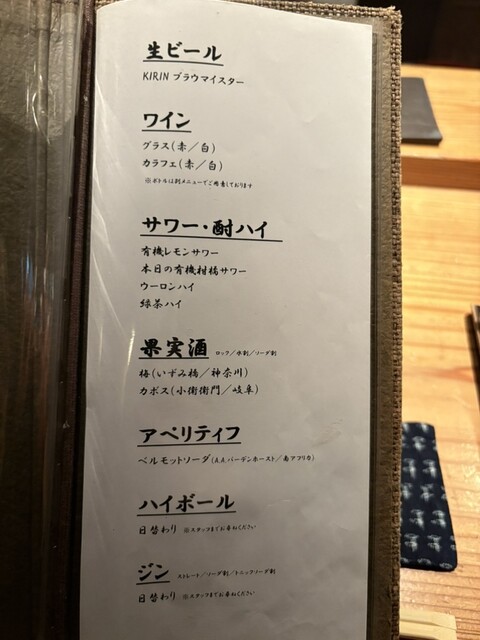 生ビール
KIRIN ブラウマイスター
ワイン
グラス(赤/白)
カラフェ(赤/白)
※ボトルは別メニューでご用意しております
サワー・酎ハイ
有機レモンサワー
本日の有機柑橘サワー
ウーロンハイ
緑茶ハイ
果実酒 ロック/水割/ソーダ割
梅(いずみ橋/神奈川)
カボス(小衛衛門/岐阜)
アペリティフ
ベルモットソーダ(A.A.バーデンホースト/南アフリカ)
ハイボール
日替わり ※スタッフまでお尋ねください
ジン ストレート/ソーダ割/トニックソーダ割
日替わり ※スタッフまでお尋ねください